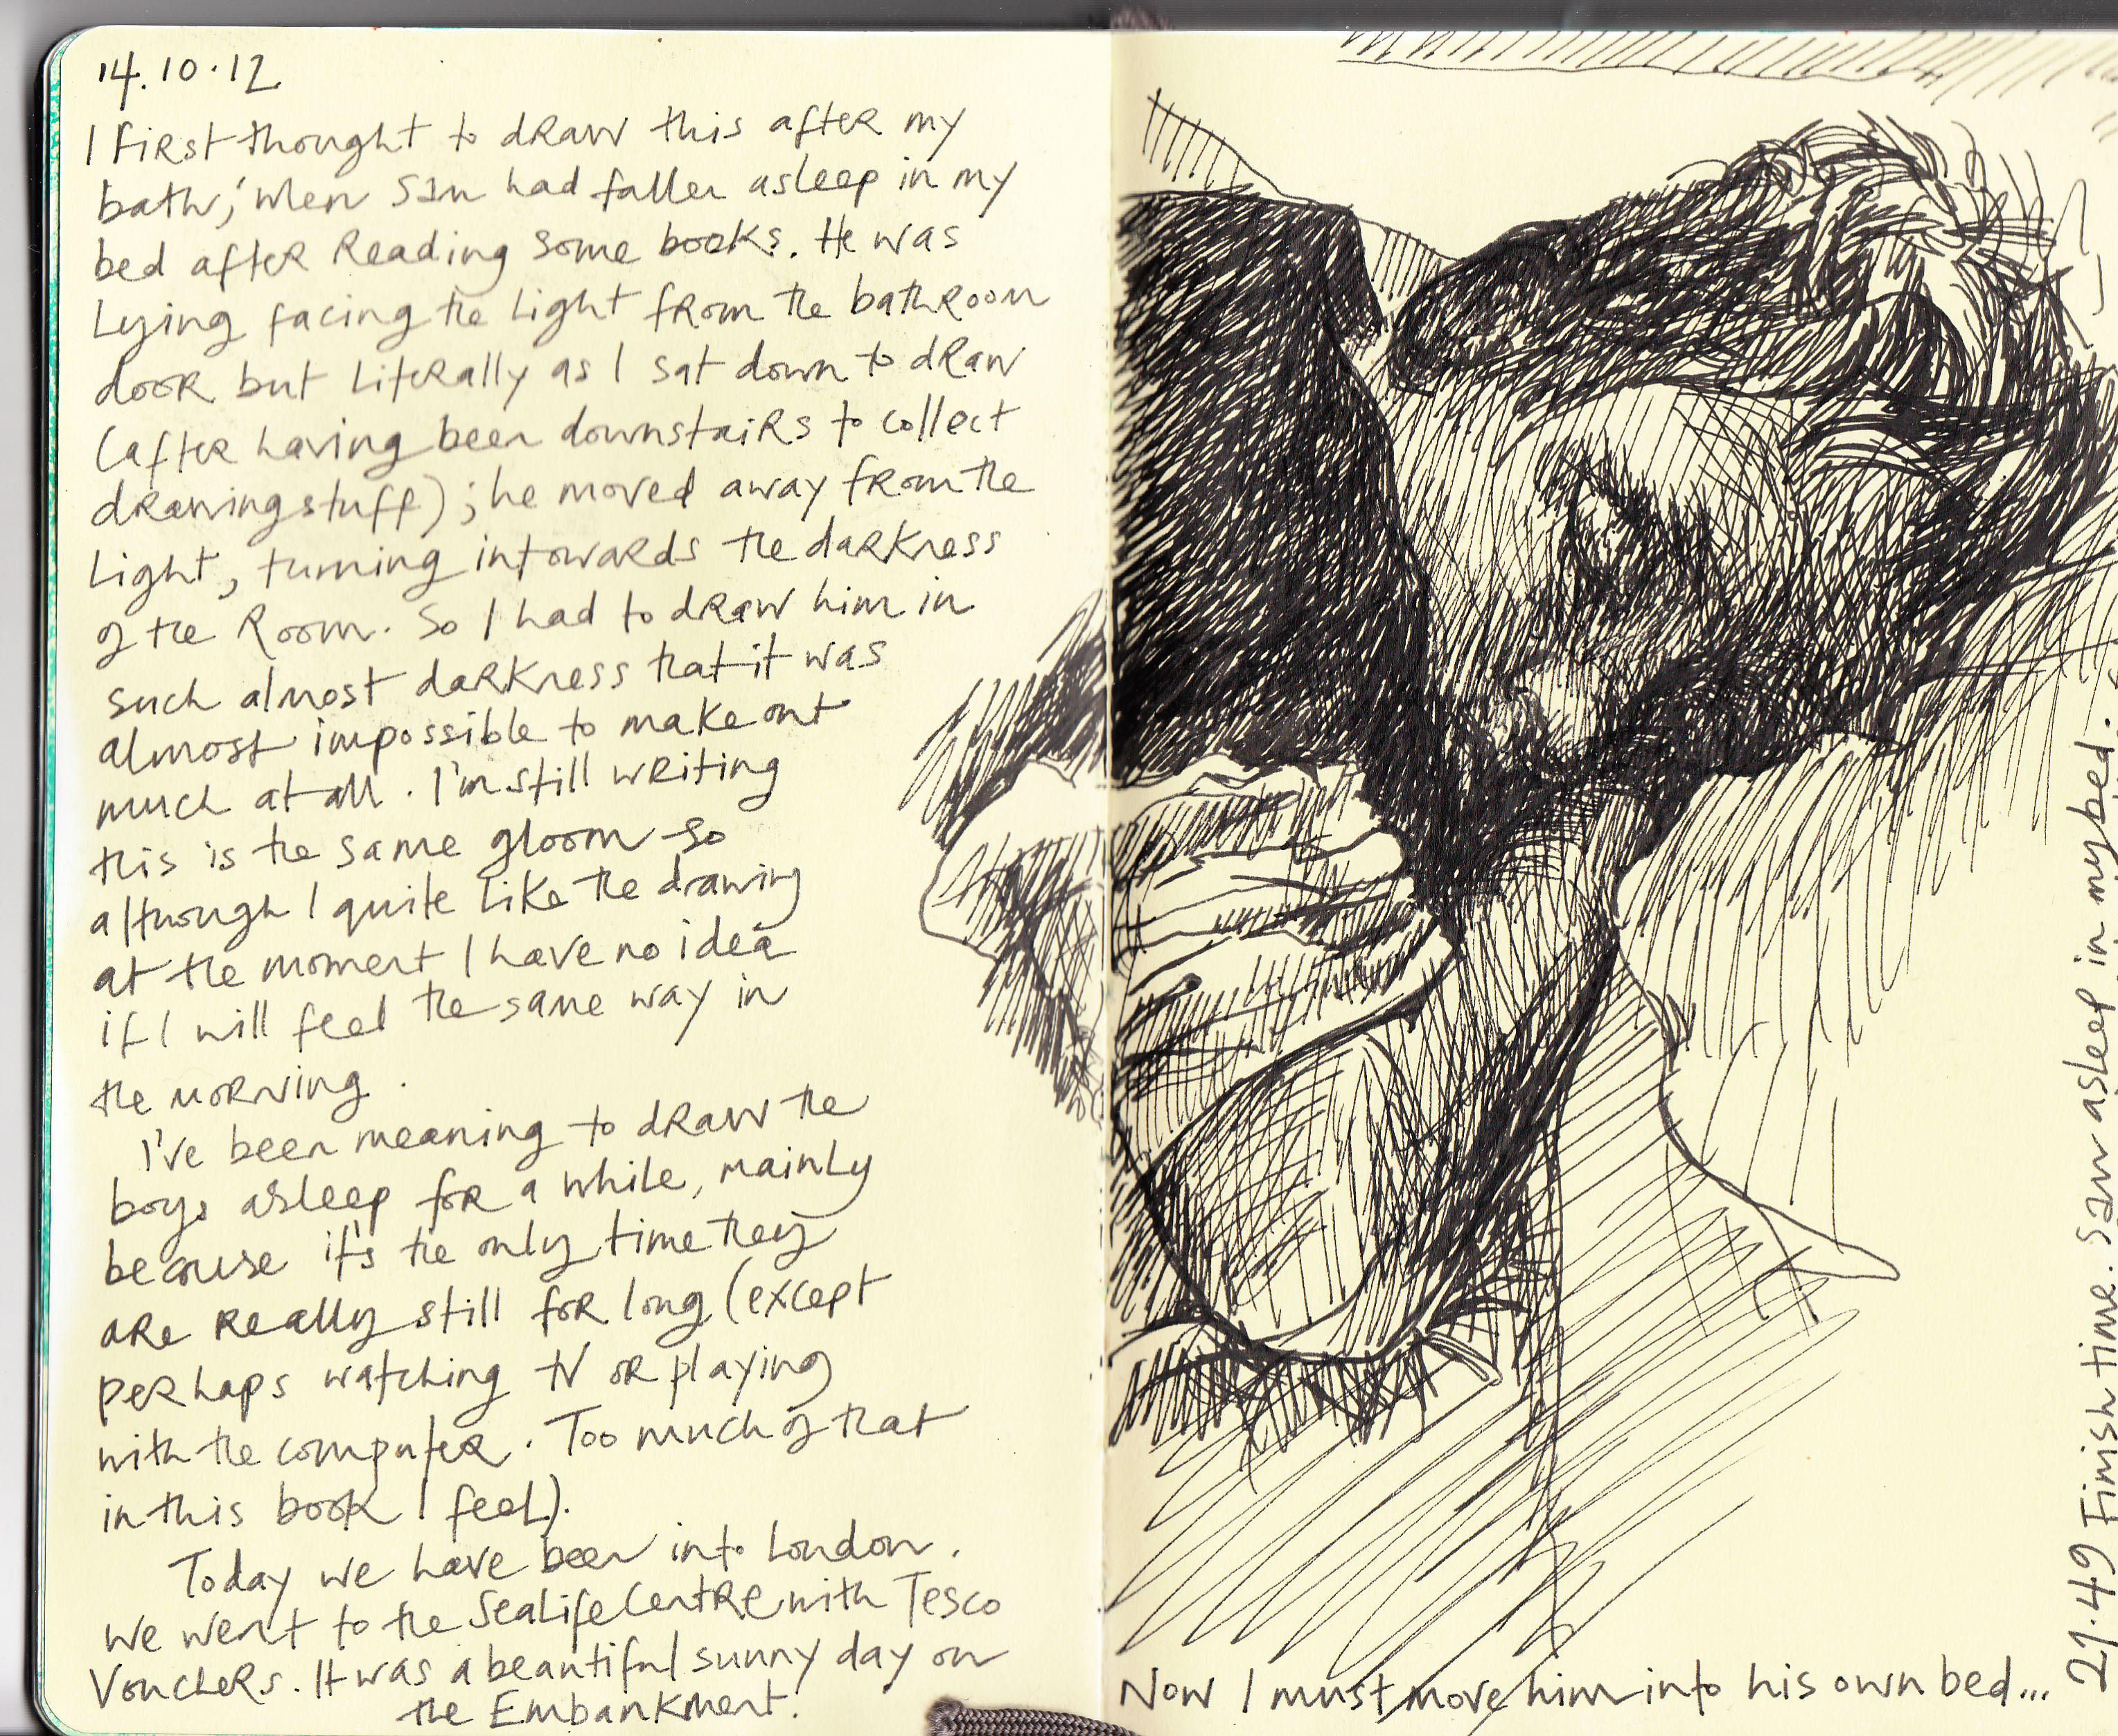 14.10.12
I first thought to draw this after my
bath; when Sam had fallen asleep in my
bed after reading some books. He was
lying facing the light from the bathroom
door but literally as I sat down to draw
(after having been downstairs to collect
drawing stuff); he moved away from the
light, turning in towards the darkness
of the room. So I had to draw him in
such almost darkness that it was
almost impossible to make out
much at all. I'm still writing
this is the same gloom so
although I quite like the drawing
at the moment I have no idea
if I will feel the same way in
the morning.
I've been meaning to draw the
boys asleep for a while, mainly
because it's the only time they
are really still for long (except
perhaps watching TV or playing
with the computer. Too much of that
in this book I feel).
Today we have been into London.
We went to the SeaLife Centre with Tesco
Vouchers. It was a beautiful sunny day on
the Embankment.
Now I must move him into his own bed...
21.49 Finish time. Sam asleep in my bed.